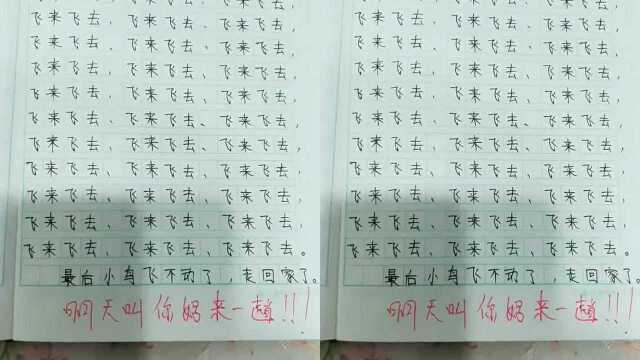 飞来飞去、飞来飞去、飞来飞去，
飞来飞去、飞来飞去、飞来飞去，
飞来飞去、飞来飞去、飞来飞去，
飞来飞去、飞来飞去、飞来飞去，
飞来飞去、飞来飞去、飞来飞去，
飞来飞去、飞来飞去、飞来飞去，
飞来飞去、飞来飞去、飞来飞去，
飞来飞去、飞来飞去、飞来飞去，
飞来飞去、飞来飞去、飞来飞去，
飞来飞去、飞来飞去、飞来飞去。
最后小鸟飞不动了，走回家了。
明天叫你妈来一趟!!!
飞来飞去、飞来飞去、飞来飞去，
飞来飞去、飞来飞去、飞来飞去，
飞来飞去、飞来飞去、飞来飞去，
飞来飞去、飞来飞去、飞来飞去，
飞来飞去、飞来飞去、飞来飞去，
飞来飞去、飞来飞去、飞来飞去，
飞来飞去、飞来飞去、飞来飞去，
飞来飞去、飞来飞去、飞来飞去，
飞来飞去、飞来飞去、飞来飞去，
飞来飞去、飞来飞去、飞来飞去。
最后小鸟飞不动了，走回家了。
明天叫你妈来一趟!!!